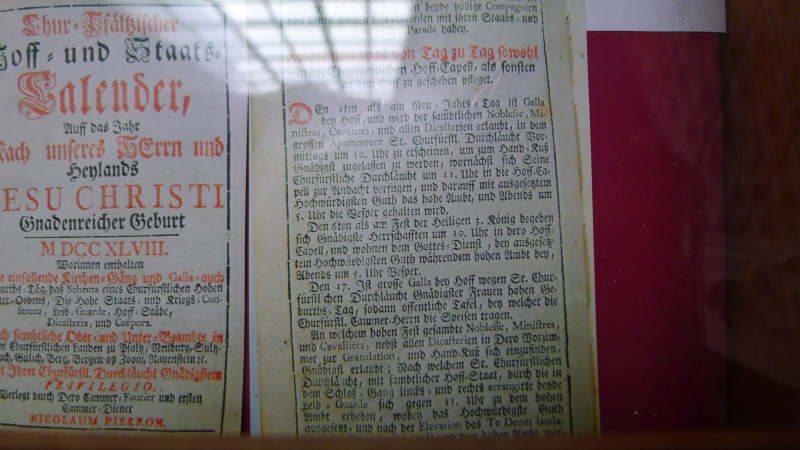 Chur-Pfältzischer
Hoff- und Staats-
Calender,
Auff das Jahr
Nach unseres HErrn und
Heylands
JESU CHRISTI
Gnadenreicher Geburt
M DCC XLVIII.
Worinnen enthalten
einfallende Kirchen-Gäng und Galla- auch
Geburths-Täg, das Schema eines Churfürstlichen Hohen
Ritter-Ordens, Die Hohe Staats- und Kriegs-Con-
ferenz, Leib-Guarde, Hoff-Stäbe,
Dicasteria, und Corpora.
sambtliche Ober- und Unter-Beambte in
Churfürstlichen Landen zu Pfaltz, Neuburg, Sultz-
bach, Gülich, Berg, Bergen op Zoom, Ravenstein ꝛc.
Mit Ihrer Churfürstl. Durchläucht Gnädigstem
PRIVILEGIO.
Verlegt durch Dero Cammer-Fourier und ersten
Cammer-Diener
NICOLAUM PIERRON.
beyde völlige Compagnien
von beyden Leib-Guarden mit ihren Staabs- und
Parade dabey.
was von Tag zu Tag sowohl
in der Churfürstlichen Hoff-Capell, als sonsten
an dem Hoff zu geschehen pfleget.
DEn 1ten als am Neu-Jahrs-Tag ist Galla
bey Hoff, und wird der sambtlichen Noblesse, Mi-
nistres, Cavaliers, und allen Dicasterien erlaubt, in dem
grossen Apartement Sr. Churfürstl. Durchläucht Vor-
mittags um 10. Uhr zu erscheinen, um zum Hand-Kuß
Gnädigst zugelassen zu werden, wornächst sich Seine
Churfürstliche Durchläucht um 11. Uhr in die Hoff-Ca-
pell zur Andacht verfügen, und darauff mit ausgesetztem
Hochwürdigsten Guth das hohe Ambt, und Abends um
5. Uhr die Vesper gehalten wird.
Den 6ten als am Fest der Heiligen 3. König begeben
sich Gnädigste Herrschafften um 10. Uhr in dero Hoff-
Capell, und wohnen dem Gottes-Dienst, bey ausgesetz-
tem Hochwürdigsten Guth währendem hohen Ambt bey,
Abends um 5. Uhr Vesper.
Den 17. Ist grosse Galla bey Hoff wegen Sr. Chur-
fürstlichen Durchläucht Gnädigster Frauen hohen Ge-
burths-Tag, sodann offentliche Tafel, bey welcher die
Churfürstl. Cammer-Herrn die Speisen tragen.
An welchem hohen Fest gesambte Noblesse, Ministres,
und Cavaliers, nebst allen Dicasterien in Dero Vorzim-
mer zur Gratulation, und Hand-Kuß sich einzufinden,
Gnädigst erlaubt; Nach welchem Sr. Churfürstlichen
Durchläucht, mit sambtlicher Hoff-Staat, durch die in
dem Schloß-Gang lincks- und rechts arrangirte beyde
Leib-Guarde sich gegen 11. Uhr zu dem hohen
Ambt erheben, wobey das Hochwürdigste Guth
ausgesetzt- und nach der Elevation das Te Deum lauda-